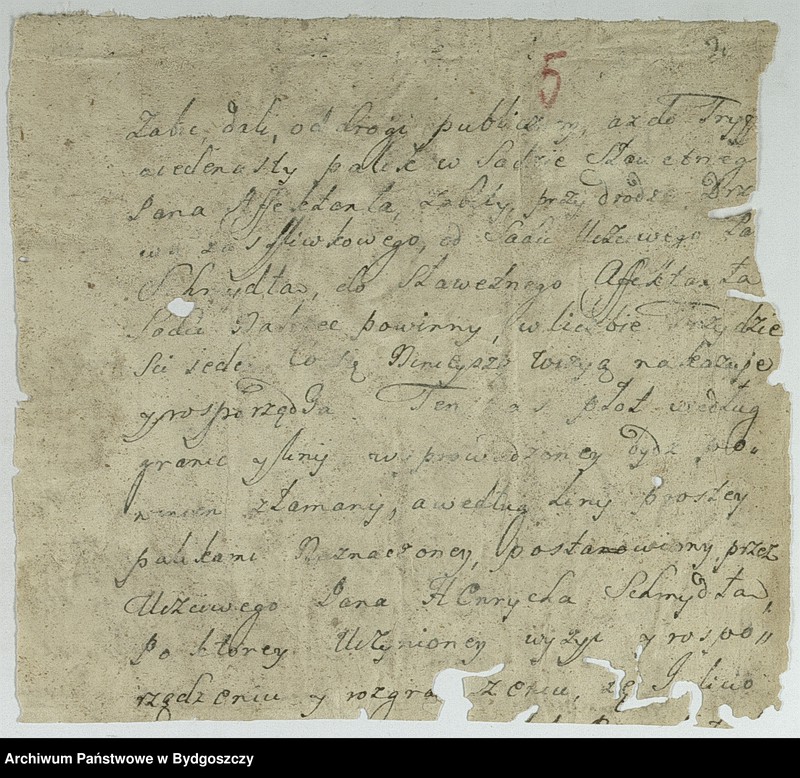 5
dali, od drogi publiczney, aż do
palik w Sadzie Sławetneg
Pana Affektanta, zabity, przy drodze Drz
wa za Sliwkowego, od Sadu Uczciwego Pa
Schmydta, do Sławetnego Affektanta
Sadu Należec powinny, w liczbie Trzydzie
Sci Ninieyszo nakazuje
y rosporządza Ten płot według
granic y liny w prowadzoney bydz po„
winien złamany, a według liny prostey
palikami Naznaczoney, postanowiony, przez
Uczciwego Pana HEnrycha Schmydta,
Po ktorey Uczynioney wyzyi y rospo„
rządzeniu y rozgra zeniu,
Archiwum Państwowe w Bydgoszczy